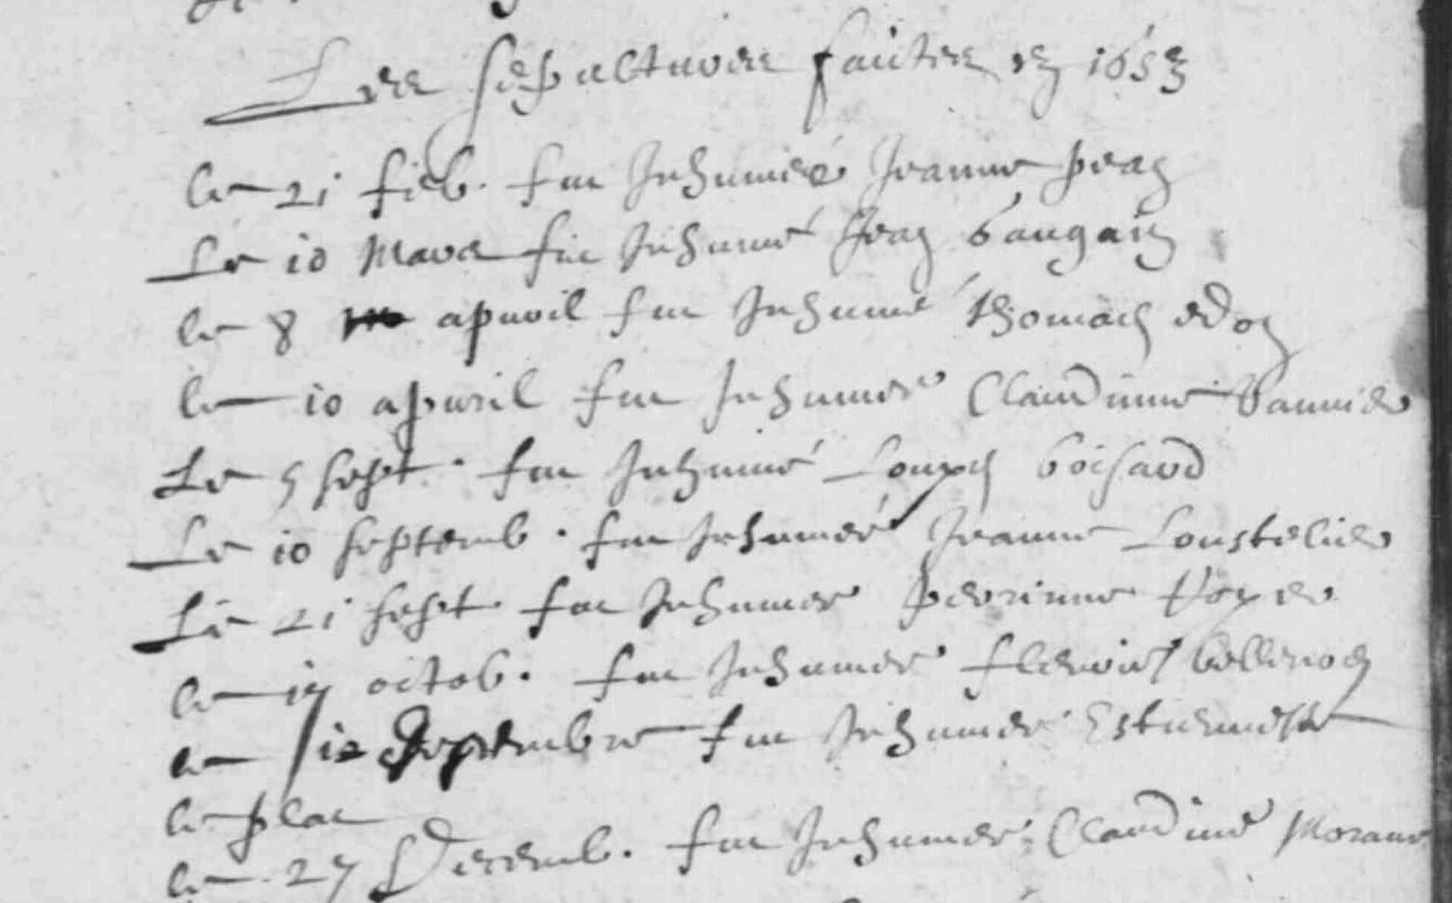 Les sepultures faictes en 1653
le 21 feb. fut Inhumée Jeanne pean
Le 10 Mars fut Inhumé Jean baugain
le 8 apuril fut Inhumé Thomas edon
le 10 apuril fut Inhumee Claudinne Vannier
Le 5 sept. fut Inhumé Louys boisard
Le 10 septemb. fut Inhumeé Jeanne Loustelier
Le 21 sept fut Inhumee perrinne Voyer
le 17 octob. fut Inhumee
le 12 septembre fut Inhumee
le plat
le 27 Decemb. fut Inhumee Claudine Morane